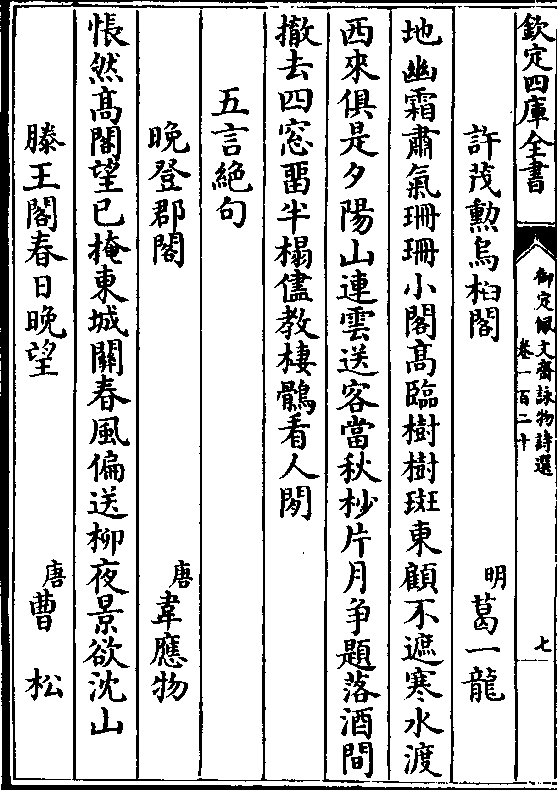 欽定四庫全書
御定佩文齋詠物詩選
卷一百二十
七
許茂勲烏桕閣　明葛一龍
地幽霜肅氣珊珊小閣髙臨樹樹斑東顧不遮寒水渡
西來俱是夕陽山連雲送客當秋杪片月争題落酒間
撤去四窓畱半榻儘教棲鶻看人閒
五言絶句
晩登郡閣　唐韋應物
悵然髙閣望已掩東城關春風偏送柳夜景欲沈山
滕王閣春日晩望　唐曹松